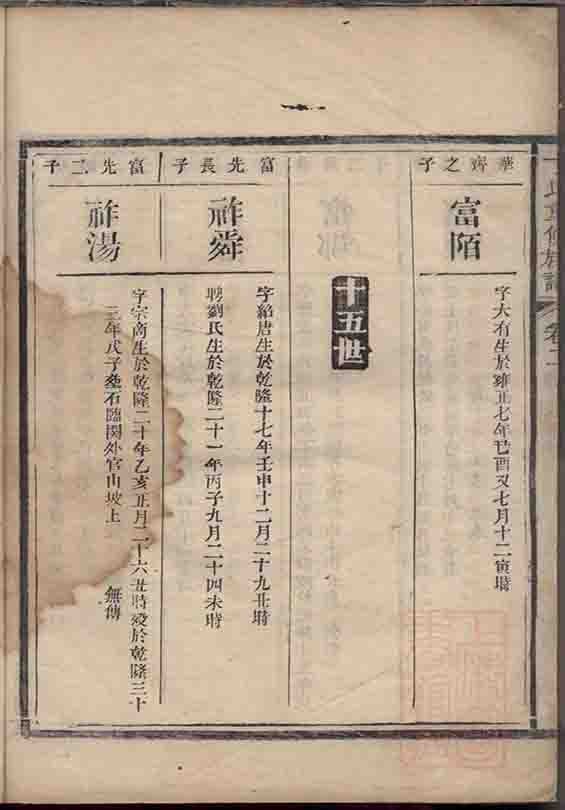 氏重修族譜
卷二
華齊之子
富陌
字大有生於雍正七年己酉又七月十二寅時
十五世
富先長子
祚舜
字紹唐生於乾隆十七年壬申十二月二十九丑時
聘劉氏生於乾隆二十一年丙子九月二十四未時
富先二子
祚湯
字宗商生於乾隆二十年乙亥正月二十六丑時歿於乾隆三十
三年戊子塟石臨関外官山坡上 無傳